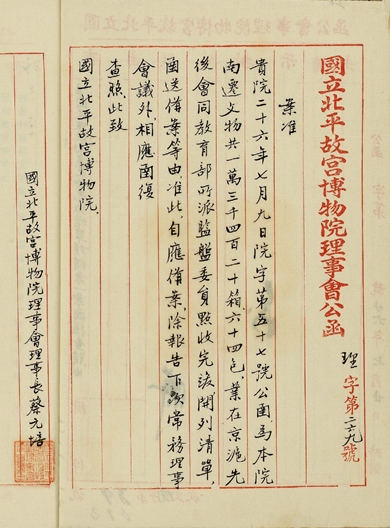 國立北平故宮博物院理事會公函
理字第二六九號
案准
貴院二十六年七月九日院字第五十七號公函為本院
南遷文物共一萬三千四百二十箱六十四包業在京滬先
後會同教育部所派監盤委員點收完竣開列清單
函送備案等由准此自應備案除報告下次常務理事
會議外相應函復
查照此致
國立北平故宮博物院
國立北平故宮博物院理事會理事長蔡元培